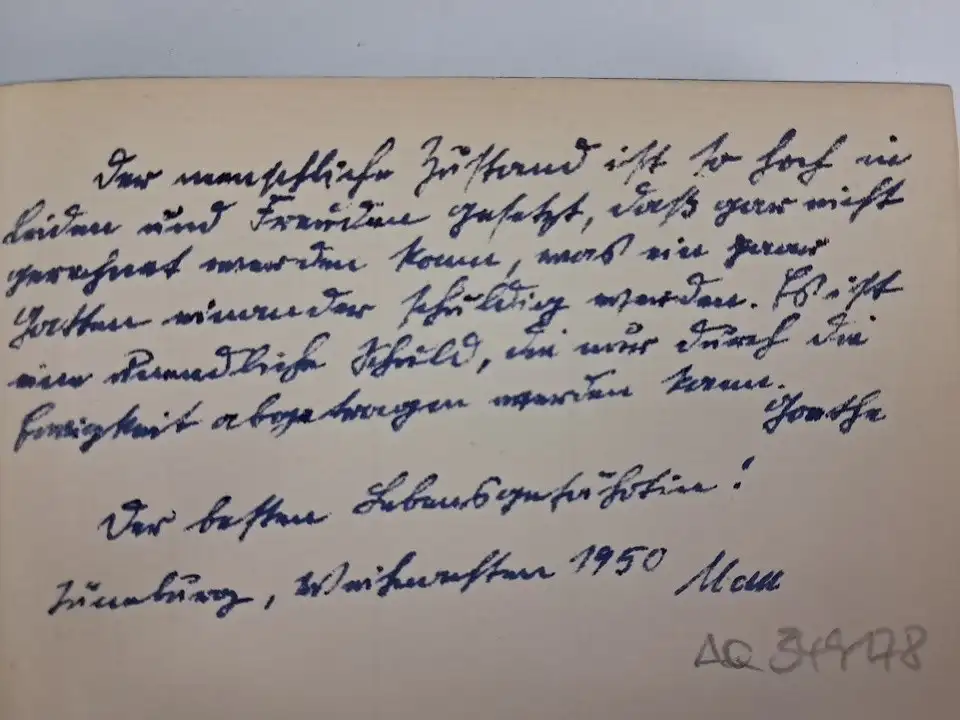 Der menschliche Zustand ist so hoch in
Leiden und Freuden gesetzt, daß gar nicht
gerechnet werden kann, was ein paar
Gatten einander schuldig werden. Es ist
eine unendliche Schuld, die nur durch die
Ewigkeit abgetragen werden kann.
Goethe
Der besten Lebensgefährtin!
Lüneburg, Weihnachten 1950
AQ 349178